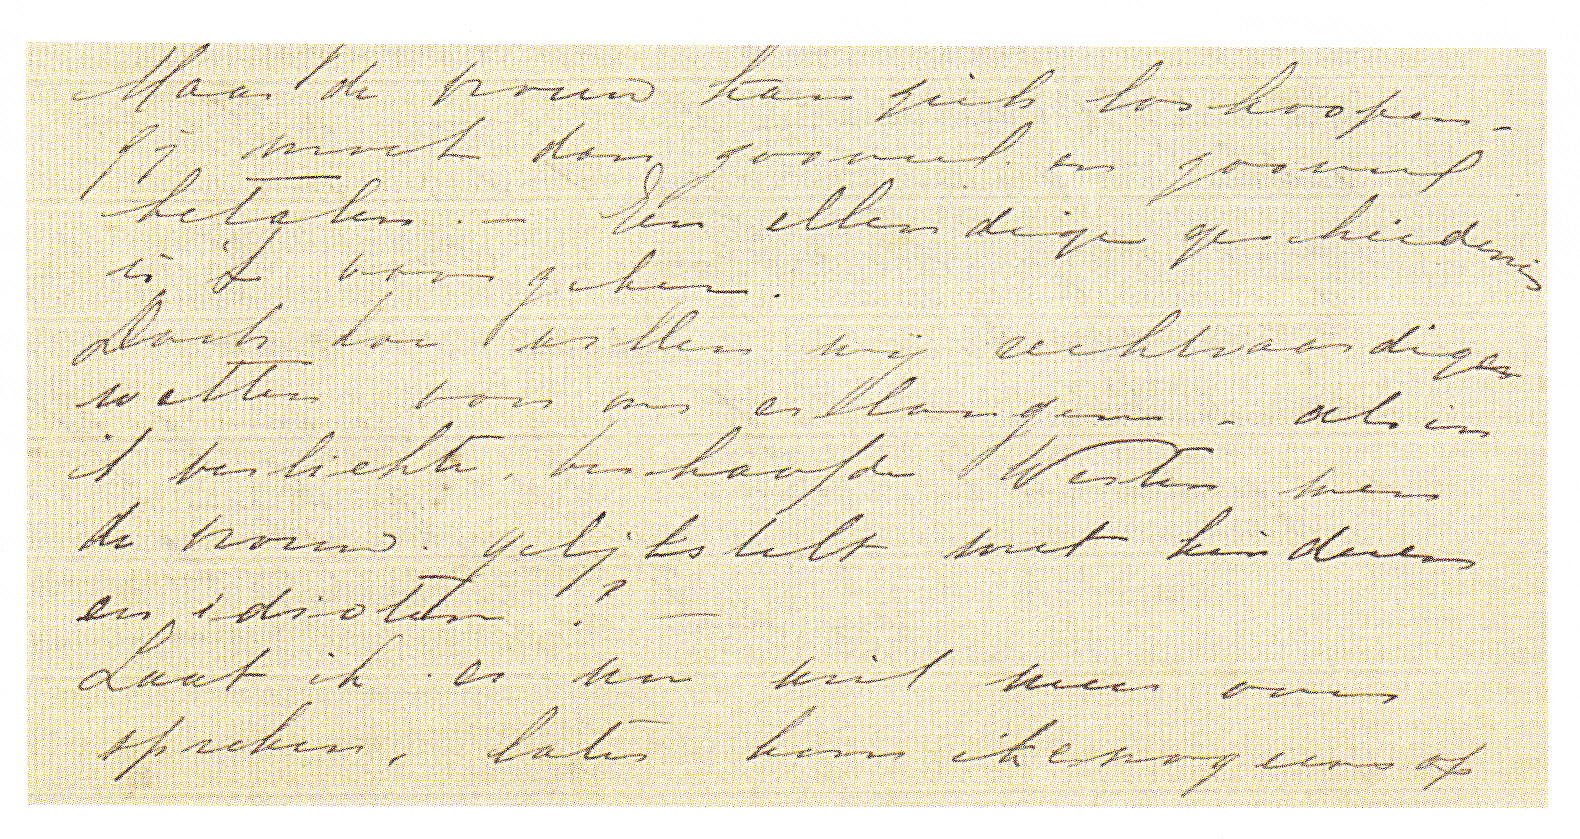 Maar de vrouw kan zich loskoopen -
zij moet dan zooveel en zooveel
betalen. - Een ellendige geschiedenis
is 't voor velen.
Doch hoe willen wij rechtvaardiger
wetten voor ons erlangen - als in
't verlichte, beschaafde Westen men
de vrouw gelijkstelt met kinderen
en idioten? -
Laat ik er nu niet meer over
spreken, later kom ik er nog eens op